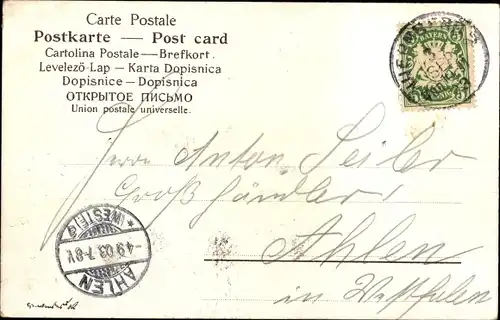 Carte Postale
Postkarte — Post card
Cartolina Postale — Brefkort.
Levelezö-Lap — Karta Dopisnica
Dopisnice — Dopisnica
ОТКРЫТОЕ ПИСЬМО
Union postale universelle.
BAYERN
Herrn Anton Seiler
Großhändler
Ahlen
in Westfalen
* (WESTF.) a
4.9.03.7-8V.
AHLEN